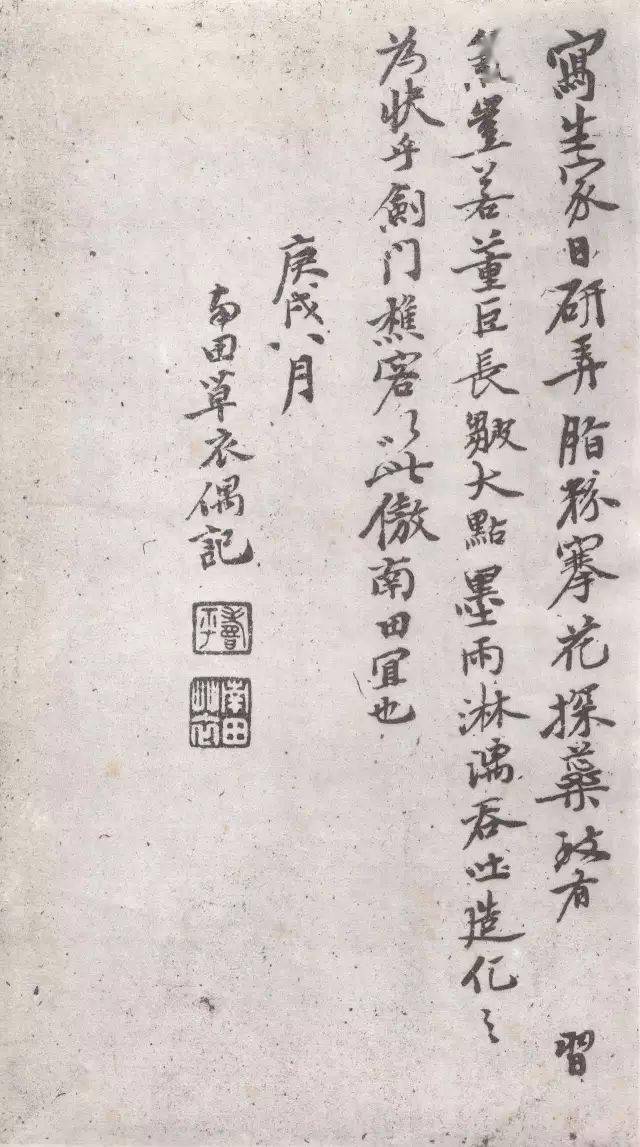 寫生家日研弄脂粉搴花探蘂致有習
豈若董巨長皺大點墨雨淋漓吞吐造化之
為快乎劍门樵客以此傲南田宜也
庚戌八月
南田草衣偶記
壽平
南田草衣